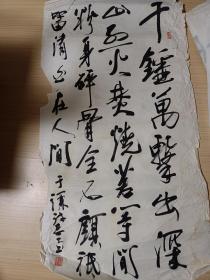 千锤萬擊出深
山烈火焚燒若等闲
粉身碎骨全不顧祇
留清白在人间
于谦